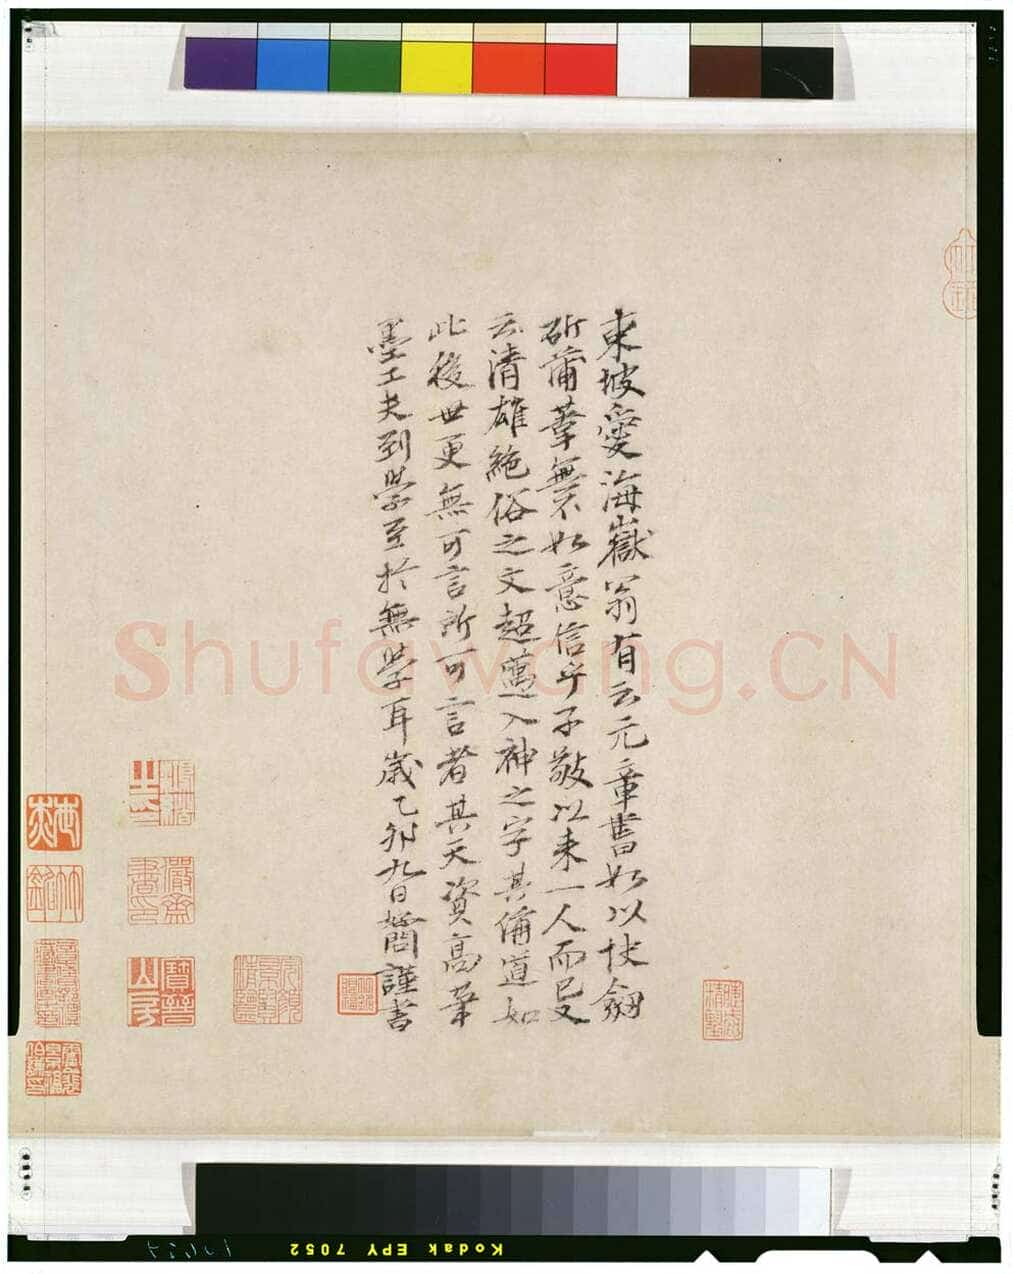 東坡愛海嶽翁有云元章書如以快劒
斫蒲葦無不如意信乎子敬以来一人而已又
云清雄絶俗之文超邁入神之字其偁道如
此後世更無可言所可言者其天資高筆
墨工夫到學至於無學耳歲乙夘九日
謹書
Shufawang.CN
寶晉山房
Kodak EPY 7052